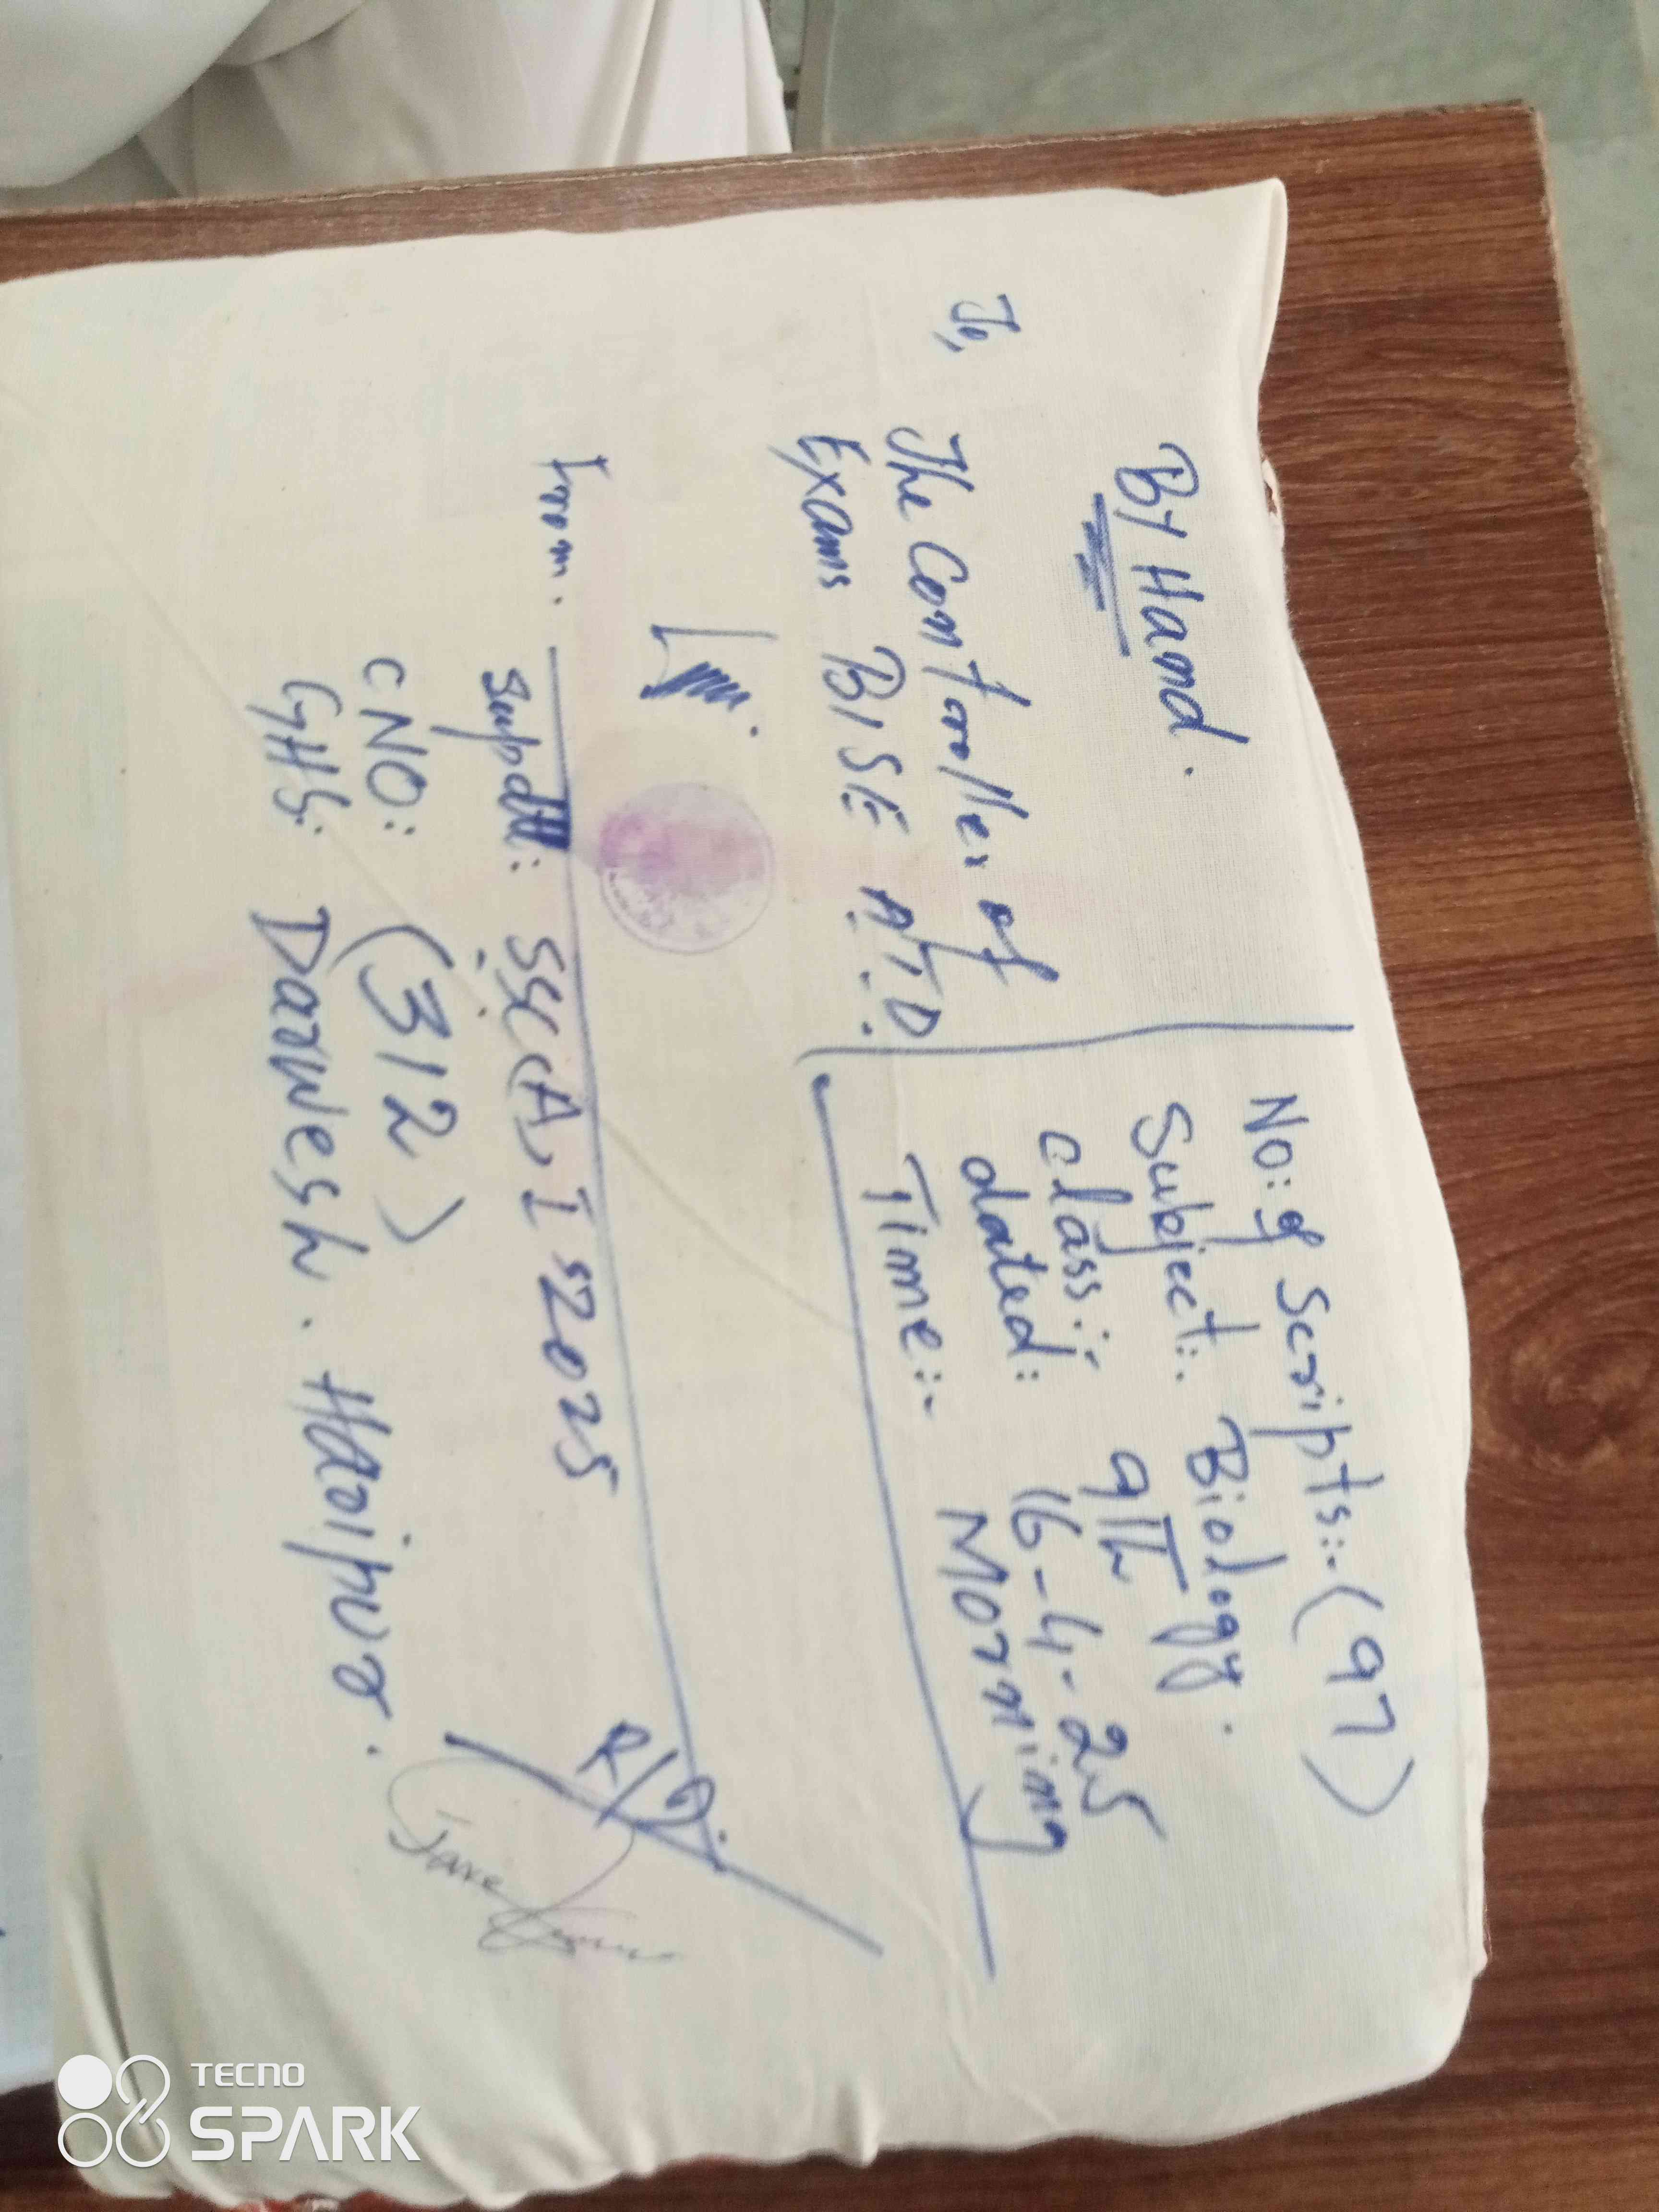 By Hand.
To,
The Controller of
Exams BISE A.T.D.
No: of Scripts:- (97)
Subject:. Biology.
class:- 9th
dated: 16-4-25
Time:- Morning
From.
Supdtt: SSC(A), I 2025
CNO: (312)
GHS: Darwesh. Haripur.
TECNO
SPARK